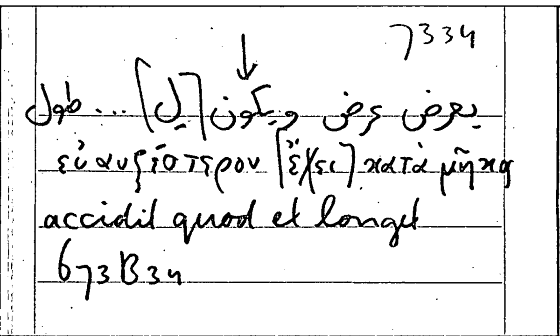 7334
يعرض عرض ويكون [يل] ... طول
εὐαυξέστερον [ἔχει] κατὰ μῆκος
accidit quod et longet
673B34